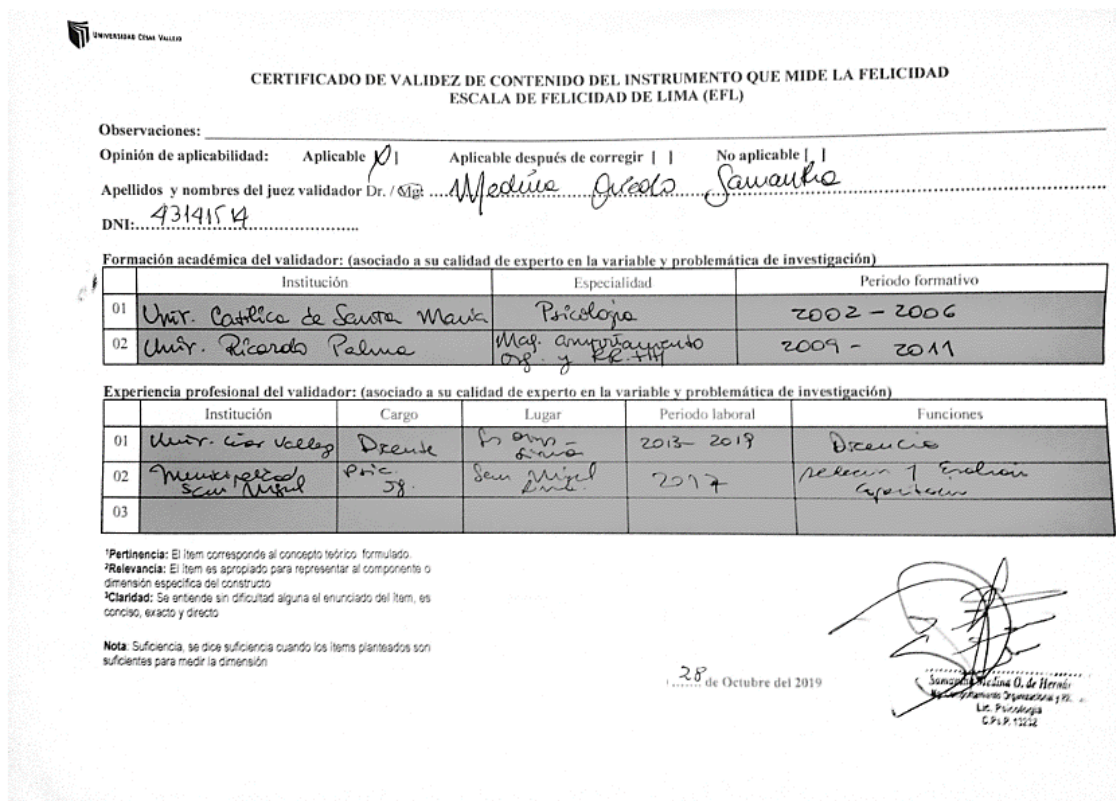 UNIVERSIDAD CÉSAR VALLEJO
CERTIFICADO DE VALIDEZ DE CONTENIDO DEL INSTRUMENTO QUE MIDE LA FELICIDAD
ESCALA DE FELICIDAD DE LIMA (EFL)
Observaciones:
Opinión de aplicabilidad: Aplicable [X] Aplicable después de corregir [ ] No aplicable [ ]
Apellidos y nombres del juez validador Dr. / Mg: Medina Oviedo Samantha
DNI:
Formación académica del validador: (asociado a su calidad de experto en la variable y problemática de investigación)
Institución Especialidad Periodo formativo
01 Univ. Católica de Santa María Psicología 2002 - 2006
02 Univ. Ricardo Palma Mag. Comportamiento Org. y RR.HH 2009 - 2011
Experiencia profesional del validador: (asociado a su calidad de experto en la variable y problemática de investigación)
Institución Cargo Lugar Periodo laboral Funciones
01 Univ. César Vallejo Docente Lima 2013- 2019 Docencia
02 Municipalidad San Miguel Psic. San Miguel 2017
03
¹Pertinencia: El ítem corresponde al concepto teórico formulado.
²Relevancia: El ítem es apropiado para representar al componente o
dimensión específica del constructo
³Claridad: Se entiende sin dificultad alguna el enunciado del ítem, es
conciso, exacto y directo
Nota: Suficiencia, se dice suficiencia cuando los ítems planteados son
suficientes para medir la dimensión
28 de Octubre del 2019
Samantha Medina O. de Hernán
Lic. Psicología
C.Ps.P. 13232